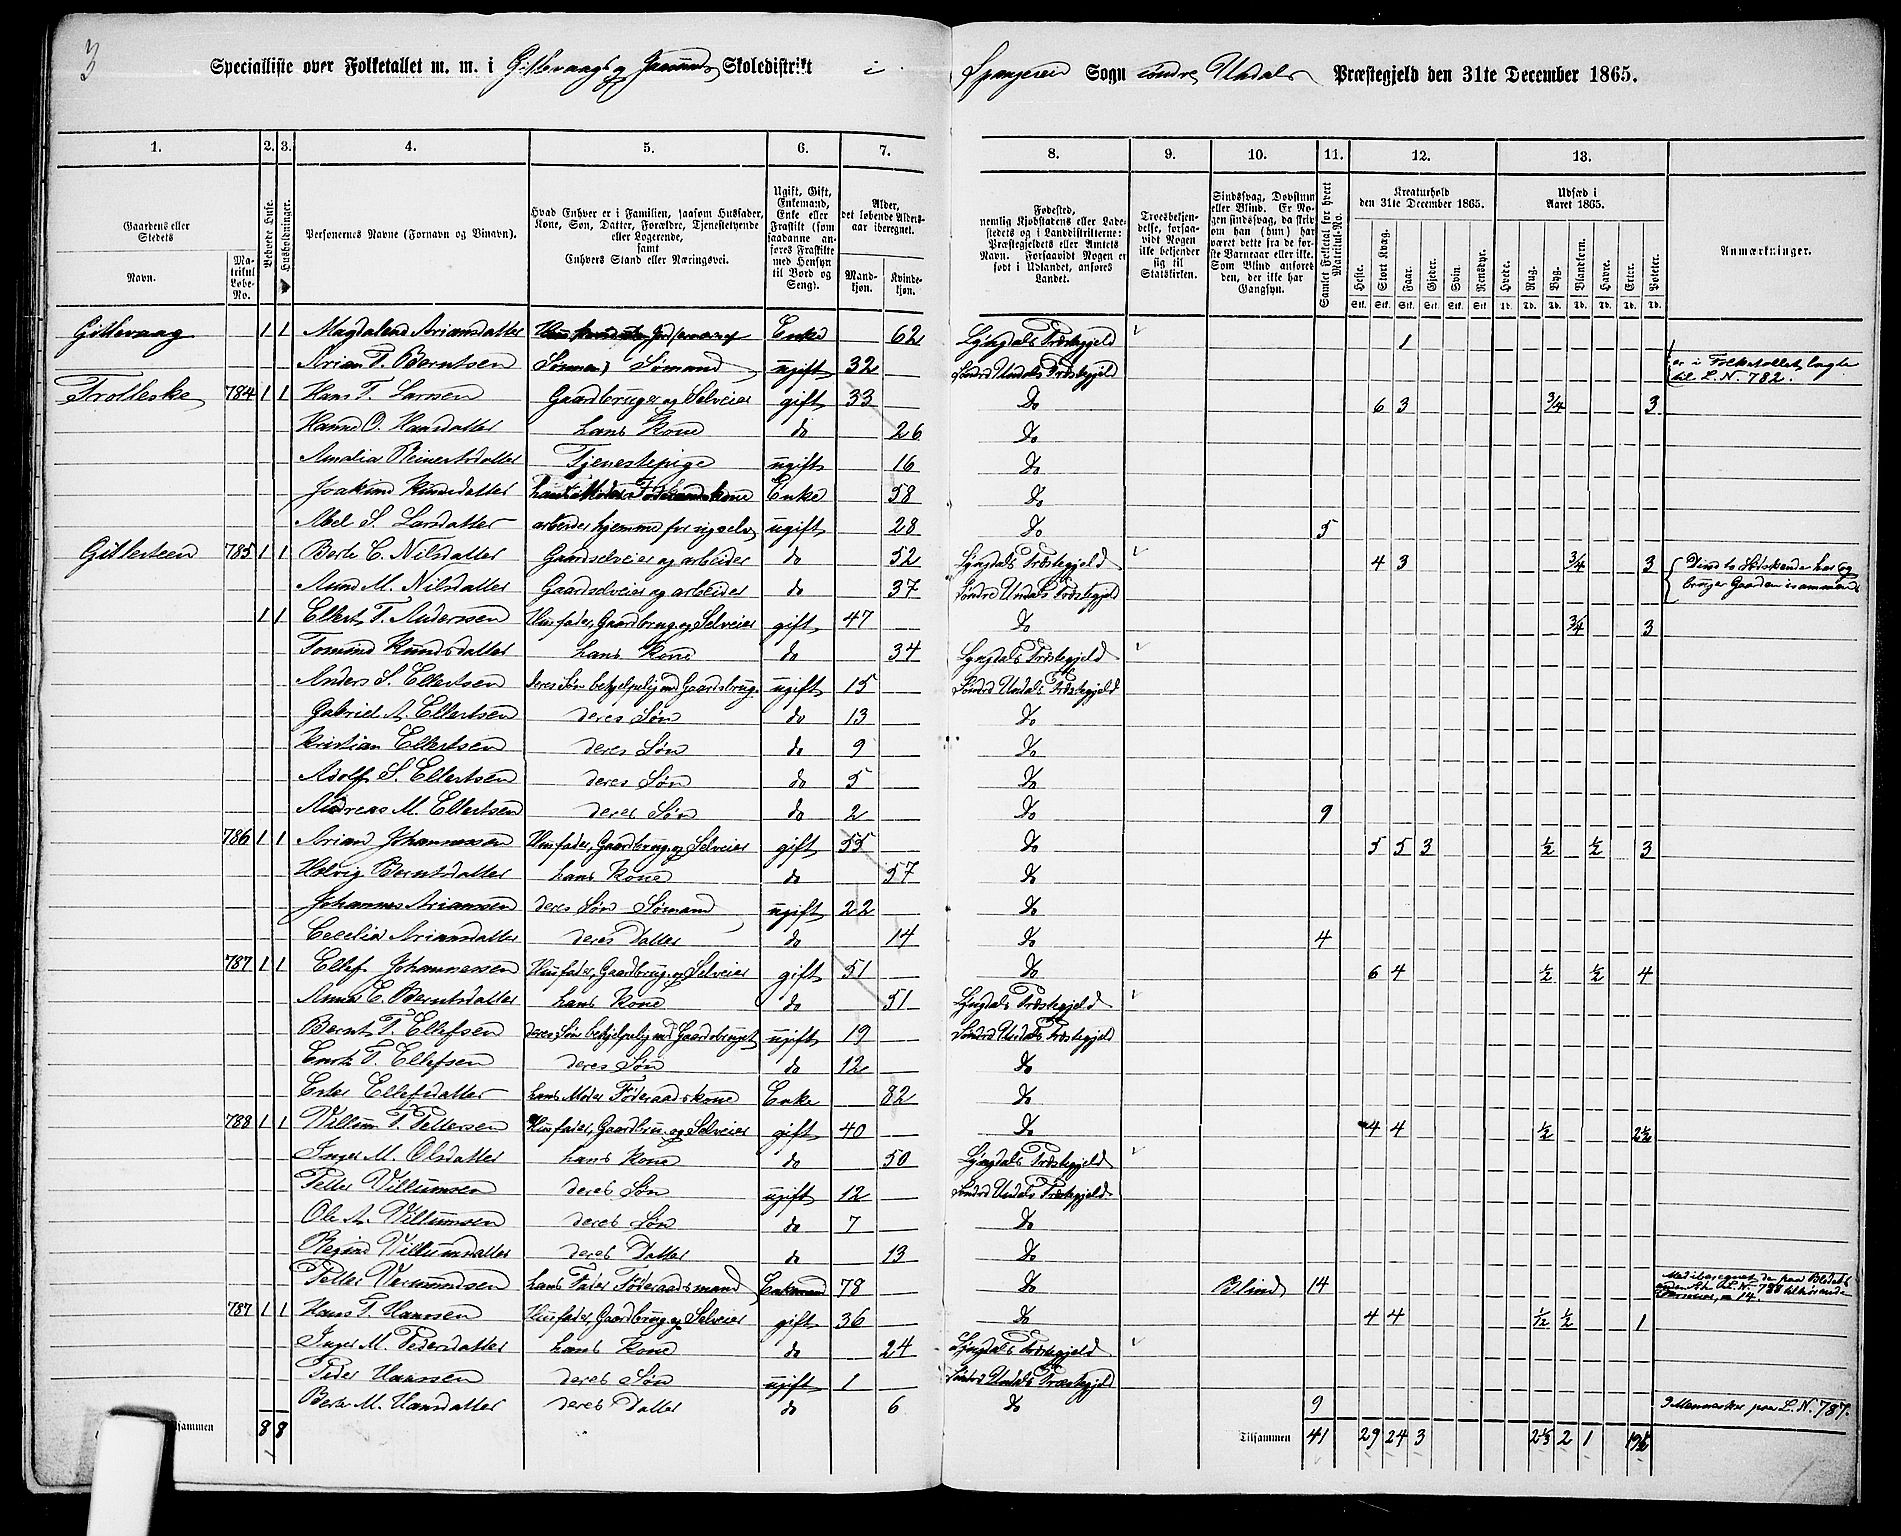 3
Specialliste over Folketallet m. m. i Gitlevaags og Skoledistrikt i Spangereid Sogn søndre Undals Præstegjeld den 31te December 1865.
1. 2. 3. 4. 5. 6. 7. 8. 9. 10. 11. 12. 13.
Gaardens eller Stedets
Navn.
Matrikul Løbe-No.
Beboede Huse.
Husholdninger.
Personernes Navne (Fornavn og Tilnavn).
Hvad Enhver er i Familien, saasom Husfader, Kone, Søn, Datter, Forældre, Tjenestetyende eller Logerende, samt Enhvers Stand eller Næringsvei.
Ugift, Gift, Enkemand, Enke eller Fraskilt (som saadanne anføres Fraskilte med Hensyn til Bord og Seng).
Alder, det løbende Aldersaar iberegnet.
Mandkjøn.
Kvindekjøn.
Fødested, nemlig Kjøbstadens eller Ladestedets og i Landdistrikterne: Præstegjeldets eller Amtets Navn. Forsaavidt Nogen er født i Udlandet, anføres Landet.
Troesbekjendelse, forsaavidt Nogen ikke bekjender sig til Statskirken.
Sindssvag, Døvstum eller Blind. Er Nogen sindssvag, da skrives om han (hun) har været dette fra de første Barneaar eller ikke. Som Blind anføres den, der ikke har Gangsyn.
Samlet Folketal for hvert Matrikul-No.
Kreaturhold den 31te December 1865.
Heste. Stort Kvæg. Faar. Gjeder. Svin. Rensdyr.
Udsæd i Aaret 1865.
Hvede. Rug. Byg. Blandkorn. Havre. Erter. Poteter.
Anmærkninger.
Gitlevaag 1 1 Magdalena Ariansdatter Enke 62 Lyngdals Præstegjeld 1
Arian T. Berntsen Sømand ugift 32 Søndre Undals Præstegjeld er i Folketallet lagte til L. N. 782.
Trolleske 784 1 1 Hans T. Larsen Gaardbruger og Selveier gift 33 Do 6 3 3/4 3
Hanne O. Hansdatter hans Kone do 26 Do
Amalia Reinertsdatter Tjenestepige ugift 16 Do
Joakime Knudsdatter hans Moder Føderaadskone Enke 58 Do
Abel S. Larsdatter arbeider hjemme for sig selv ugift 28 Do 5
Gitlesteen 785 1 1 Berte C. Nilsdatter Gaardselveier og arbeider do 52 Lyngdals Præstegjeld 4 3 3/4 3 Disse to Sødskende har og
Anne M. Nilsdatter Gaardselveier og arbeider do 37 Søndre Undals Præstegjeld bruger Gaarden isammen
1 1 Ellert T. Andersen Husfader, Gaardbrug. og Selveier gift 47 Do 3/4 3
Tomine Knudsdatter hans Kone do 34 Lyngdals Præstegjeld
Anders S. Ellertsen deres Søn behjelpelig med Gaardsbrug. ugift 15 Søndre Undals Præstegjeld
Gabriel A. Ellertsen deres Søn do 13 Do
Kristian Ellertsen deres Søn do 9 Do
Adolf S. Ellertsen deres Søn do 5 Do
Andreas M. Ellertsen deres Søn do 2 Do 9
786 1 1 Arian Johannessen Husfader, Gaardbrug. og Selveier gift 55 Do 5 5 3 1/2 1/2 3
Helvig Berntsdatter hans Kone do 57 Do
Johannes Ariansen deres Søn Sømand ugift 22 Do
Cecelia Ariansdatter deres Datter do 14 Do 4
787 1 1 Ellef Johannessen Husfader, Gaardbrug. og Selveier gift 51 Do 6 4 1/2 1/2 4
Anne E. Berntsdatter hans Kone do 51 Lyngdals Præstegjeld
Bernt T. Ellefsen deres Søn behjelpelig med Gaardsbruget ugift 19 Søndre Undals Præstegjeld
T. Ellefsen deres Søn do 12 Do
Ester Ellefsdatter hans Moder Føderaadskone Enke 82 Do
788 1 1 Villum T. Pettersen Husfader, Gaardbru. og Selveier gift 40 Do 4 4 1/2 2 1/2
Inger M. Olsdatter hans Kone do 50 Lyngdals Præstegjeld
Petter Villumsen deres Søn ugift 12 Søndre Undals Præstegjeld
Ole A. Villumsen deres Søn do 7 Do
Regine Villumsdatter deres Datter do 13 Do
Petter Vermundsen hans Fader Føderaadsmand Enkmand 78 Do Blind 14 14.
787 1 1 Hans T. Hanssen Husfader, Gaardbrug. og Selveier gift 36 Do 4 4 1/2 1/2 1
Inger M. Pedersdatter hans Kone do 24 Lyngdals Præstegjeld
Peder Hanssen deres Søn ugift 1 Søndre Undals Præstegjeld
Berte M. Hansdatter deres Datter do 6 Do 9 9 Mennesker paa L. N. 787.
8 8 Tilsammen 41 29 24 3 2 1